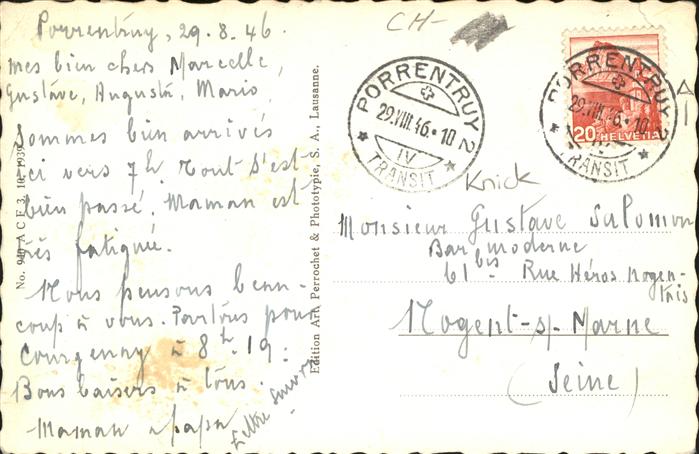 Porrentruy, 29.8.46.
mes bien chers Marcelle,
Gustave, Augusta, Mario,
Sommes bien arrivés
ici vers 7h Tout s'est
bien passé. Maman est
très fatiguée.
Nous pensons beau-
coup à vous. Partons pour
Courgenay à 8h.19.
Bons baisers à tous.
Maman papa
No. 940 A C F 3. 10. 1939
Edition Art. Perrochet & Phototypie, S. A., Lausanne.
CH-
PORRENTRUY 2
29.VIII.46.10
IV
TRANSIT
PORRENTRUY 2
29.VIII.46.10
IV
TRANSIT
20 HELVETIA
Knick
Monsieur Gustave Salomon
Bar moderne
61 bis Rue Héros Nogen-
tais
Nogent-s/-Marne
(Seine)